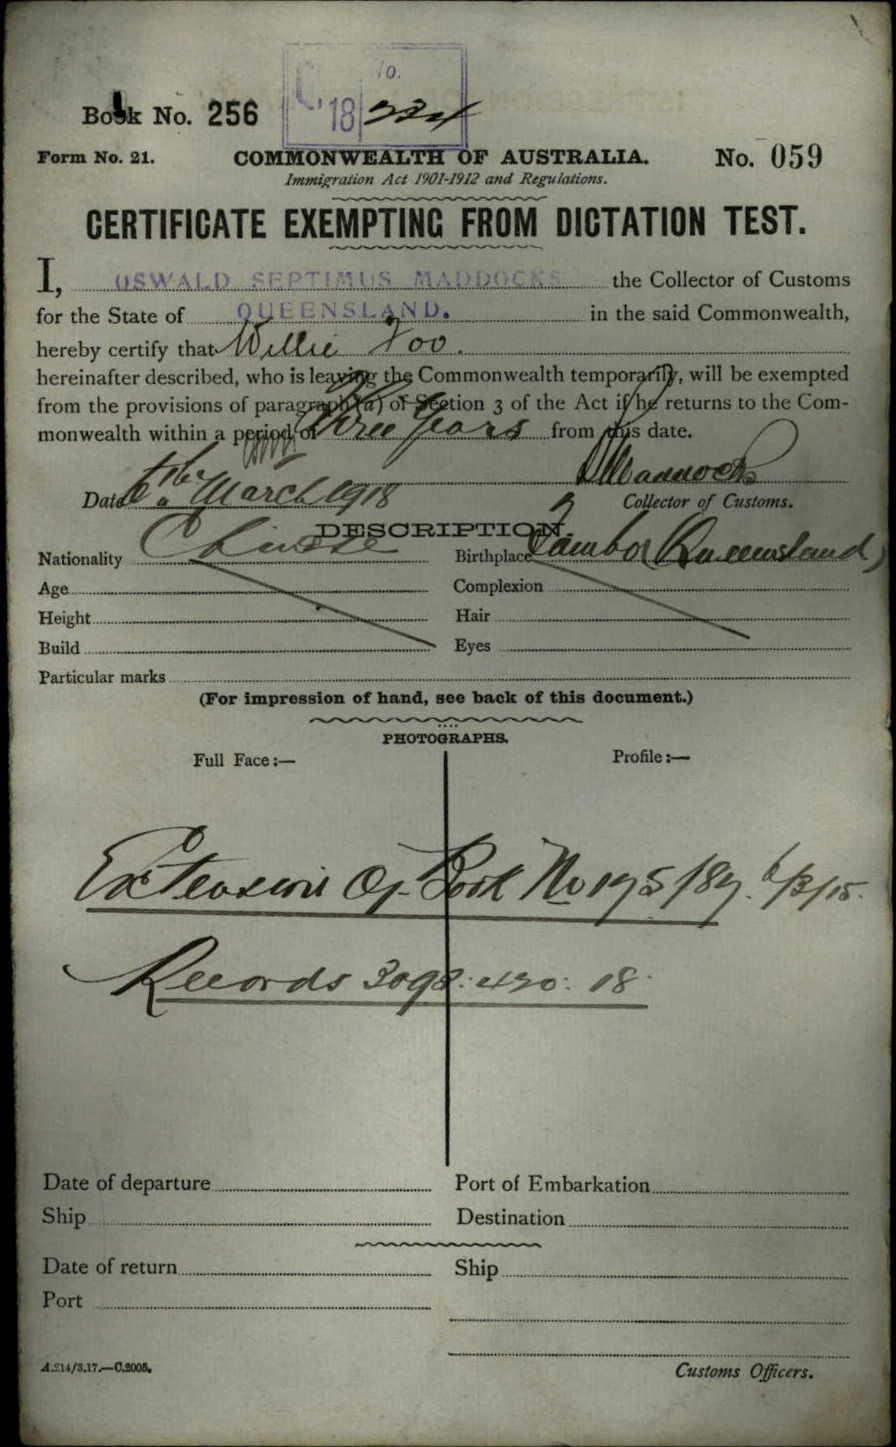 10.
Book No. 256 '18
Form No. 21. COMMONWEALTH OF AUSTRALIA. No. 059
Immigration Act 1901-1912 and Regulations.
CERTIFICATE EXEMPTING FROM DICTATION TEST.
I, OSWALD SEPTIMUS MADDOCKS the Collector of Customs
for the State of QUEENSLAND. in the said Commonwealth,
hereby certify that Willie Foo.
hereinafter described, who is leaving the Commonwealth temporarily, will be exempted
from the provisions of paragraph (a) of Section 3 of the Act if he returns to the Com-
monwealth within a period of three years from this date.
Date 6th March 1918 Maddocks
Collector of Customs.
DESCRIPTION.
Nationality Chinese Birthplace Tambo (Queensland)
Age Complexion
Height Hair
Build Eyes
Particular marks
(For impression of hand, see back of this document.)
PHOTOGRAPHS.
Full Face:— Profile:—
Extension Of Book No 175/87. 6/3/15.
Records 3098. 18.
Date of departure Port of Embarkation
Ship Destination
Date of return Ship
Port
A.214/3.17.—C.2005. Customs Officers.